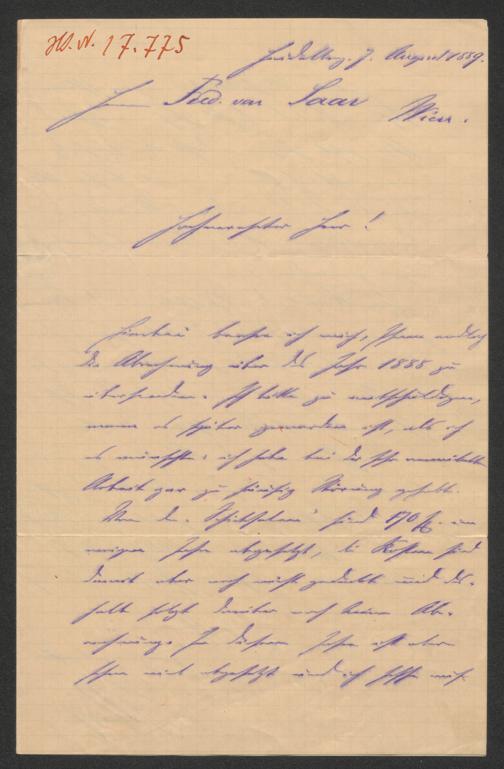 JW. N. 17.775
Heidelberg. 7. August 1889.
Herrn Ferd. von Saar
Wien.
Hochverehrter Herr!
Hierbei beehre ich mich, Ihnen endlich
die Abrechnung über das Jahr 1888 zu
übersenden. Ich bitte zu entschuldigen,
wenn es später geworden ist, als ich
es wünschte: ich habe bei der sehr
Arbeit gar zu häufig Störung gehabt.
Von den "Schicksalen" sind 170 Ex. im
vorigen Jahre abgesetzt, die Kosten sind
damit aber noch nicht gedeckt und des-
halb folgt darüber noch keine Ab-
rechnung. In diesem Jahre ist aber
schon viel abgesetzt und ich hoffe